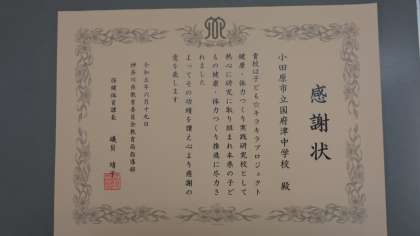 感謝状
小田原市立国府津中学校 殿
貴校は子ども☆キラキラプロジェクト
健康・体力つくり実践研究校として
熱心に研究に取り組まれ本県の子ど
もの健康・体力つくり推進に尽力さ
れました
よってその功績を讃え心より感謝の
意を表します
令和五年六月十九日
神奈川県教育委員会教育局指導部
保健体育課長